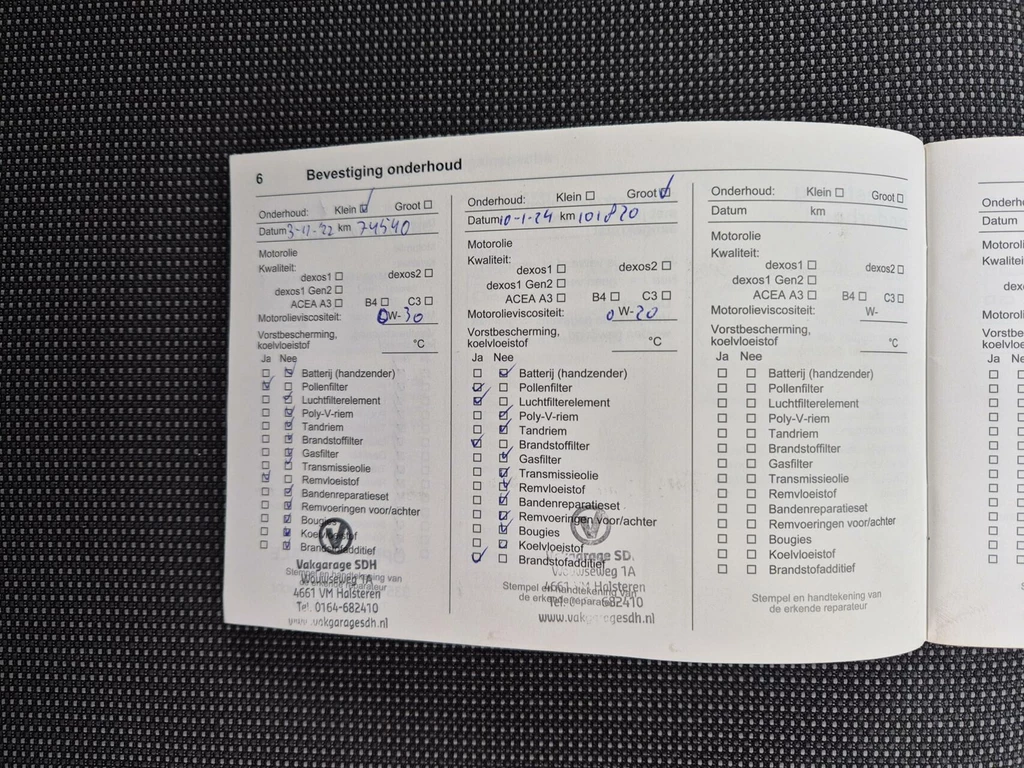 6 Bevestiging onderhoud
Onderhoud: Klein ☑ Groot ☐
Datum 3-11-22 km 74540
Motorolie
Kwaliteit:
dexos1 ☐ dexos2 ☐
dexos1 Gen2 ☐
ACEA A3 ☐ B4 ☐ C3 ☐
Motorolieviscositeit: 0W-30
Vorstbescherming,
koelvloeistof °C
Ja Nee
☐ ☑ Batterij (handzender)
☑ ☐ Pollenfilter
☐ ☑ Luchtfilterelement
☐ ☑ Poly-V-riem
☐ ☑ Tandriem
☐ ☑ Brandstoffilter
☐ ☑ Gasfilter
☐ ☑ Transmissieolie
☑ ☐ Remvloeistof
☐ ☑ Bandenreparatieset
☐ ☑ Remvoeringen voor/achter
☐ ☑ Bougies
☐ ☑ Koelvloeistof
☐ ☑ Brandstofadditief
Vakgarage SDH
Wouwseweg 1A
4661 VM Halsteren
Tel. 0164-682410
www.vakgaragesdh.nl
Stempel en handtekening van
de erkende reparateur
Onderhoud: Klein ☐ Groot ☑
Datum 10-1-24 km 101820
Motorolie
Kwaliteit:
dexos1 ☐ dexos2 ☐
dexos1 Gen2 ☐
ACEA A3 ☐ B4 ☐ C3 ☐
Motorolieviscositeit: 0W-20
Vorstbescherming,
koelvloeistof °C
Ja Nee
☐ ☑ Batterij (handzender)
☑ ☐ Pollenfilter
☑ ☐ Luchtfilterelement
☐ ☑ Poly-V-riem
☐ ☑ Tandriem
☑ ☐ Brandstoffilter
☐ ☑ Gasfilter
☐ ☑ Transmissieolie
☐ ☑ Remvloeistof
☐ ☑ Bandenreparatieset
☐ ☑ Remvoeringen voor/achter
☐ ☑ Bougies
☐ ☑ Koelvloeistof
☑ ☐ Brandstofadditief
Vakgarage SD
Wouwseweg 1A
4661 VM Halsteren
Tel. 682410
www.vakgaragesdh.nl
Stempel en handtekening van
de erkende reparateur
Onderhoud: Klein ☐ Groot ☐
Datum km
Motorolie
Kwaliteit:
dexos1 ☐ dexos2 ☐
dexos1 Gen2 ☐
ACEA A3 ☐ B4 ☐ C3 ☐
Motorolieviscositeit: W-
Vorstbescherming,
koelvloeistof °C
Ja Nee
☐ ☐ Batterij (handzender)
☐ ☐ Pollenfilter
☐ ☐ Luchtfilterelement
☐ ☐ Poly-V-riem
☐ ☐ Tandriem
☐ ☐ Brandstoffilter
☐ ☐ Gasfilter
☐ ☐ Transmissieolie
☐ ☐ Remvloeistof
☐ ☐ Bandenreparatieset
☐ ☐ Remvoeringen voor/achter
☐ ☐ Bougies
☐ ☐ Koelvloeistof
☐ ☐ Brandstofadditief
Stempel en handtekening van
de erkende reparateur
Datum
Ja